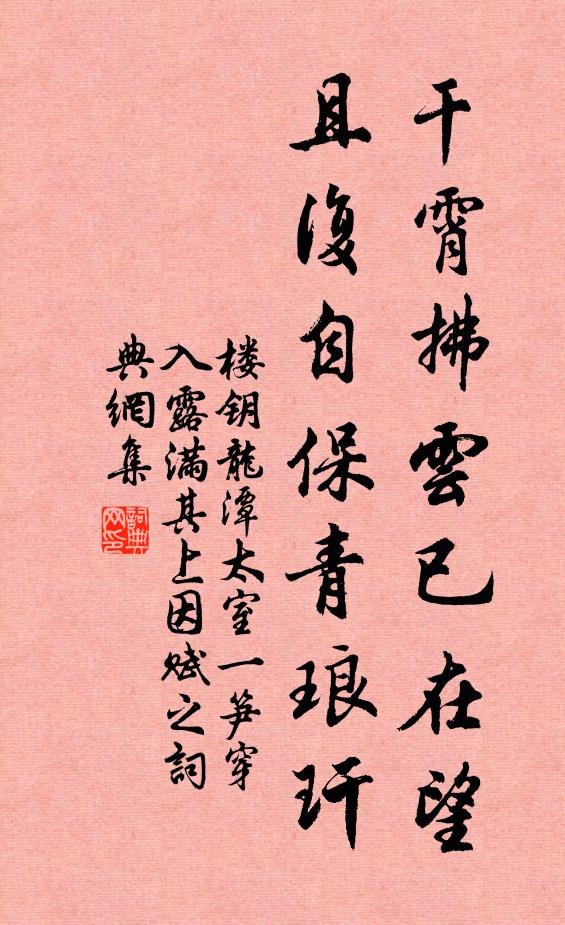 干霄拂雲已在望
且復自保青琅玕
楼钥龍潭太室一笋穿
入露满其上因赋之詞
典網集
詞典网印